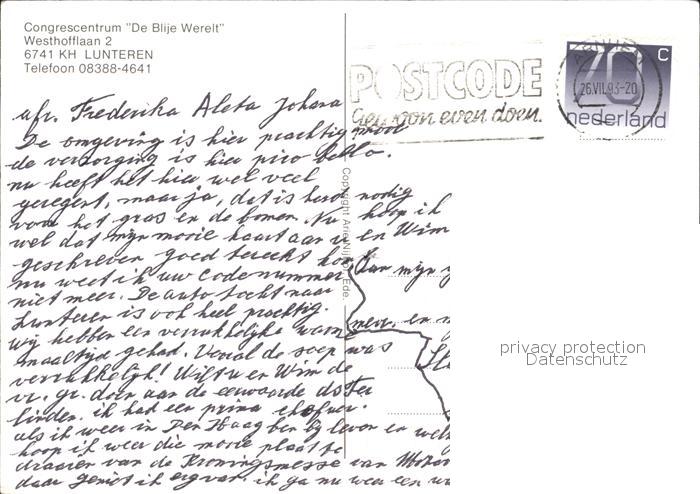 Congrescentrum "De Blije Werelt"
Westhofflaan 2
6741 KH LUNTEREN
Telefoon 08388-4641
POSTCODE
Gewoon even doen.
26.VII.93-20
70 C
nederland
afz. Frederika Aleta Johana
De omgeving is hier prachtig mooi
de verzorging is hier pico bello.
nu heeft het hier wel veel
geregent, maar ja, dat is hard nodig
voor het gras en de bomen. Nu hoop ik
wel dat mijn mooie kaart aan u en Wim
geschreven goed terecht kom
nu weet ik uw codenummer
niet meer. De autotocht naar
Lunteren is ook heel prachtig.
wij hebben een verrukkelijke warm
maaltijd gehad. Vooral de soep was
verrukkelijk! Wilt u en Wim de
vr. gr. doen aan de eerwaarde
ik had een prima chofeur.
als ik weer in Den Haag ben bij leven en welz
hoop ik weer die mooie plaat te
draaien van de Kroningsmesse van Mozar
daar geniet ik erg van. ik ga nu weer een w
aan mijn
mevr. en
Copyright Ede.
privacy protection
Datenschutz